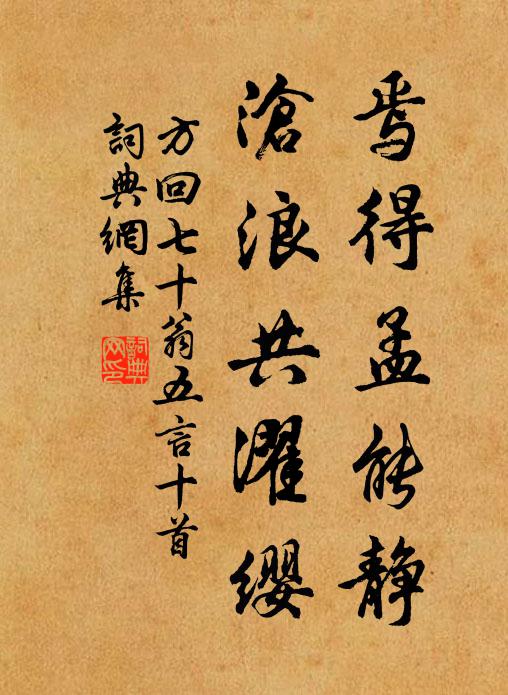 焉得孟能静
滄浪共濯纓
方回七十翁五言十首
詞典網集
詞典網印